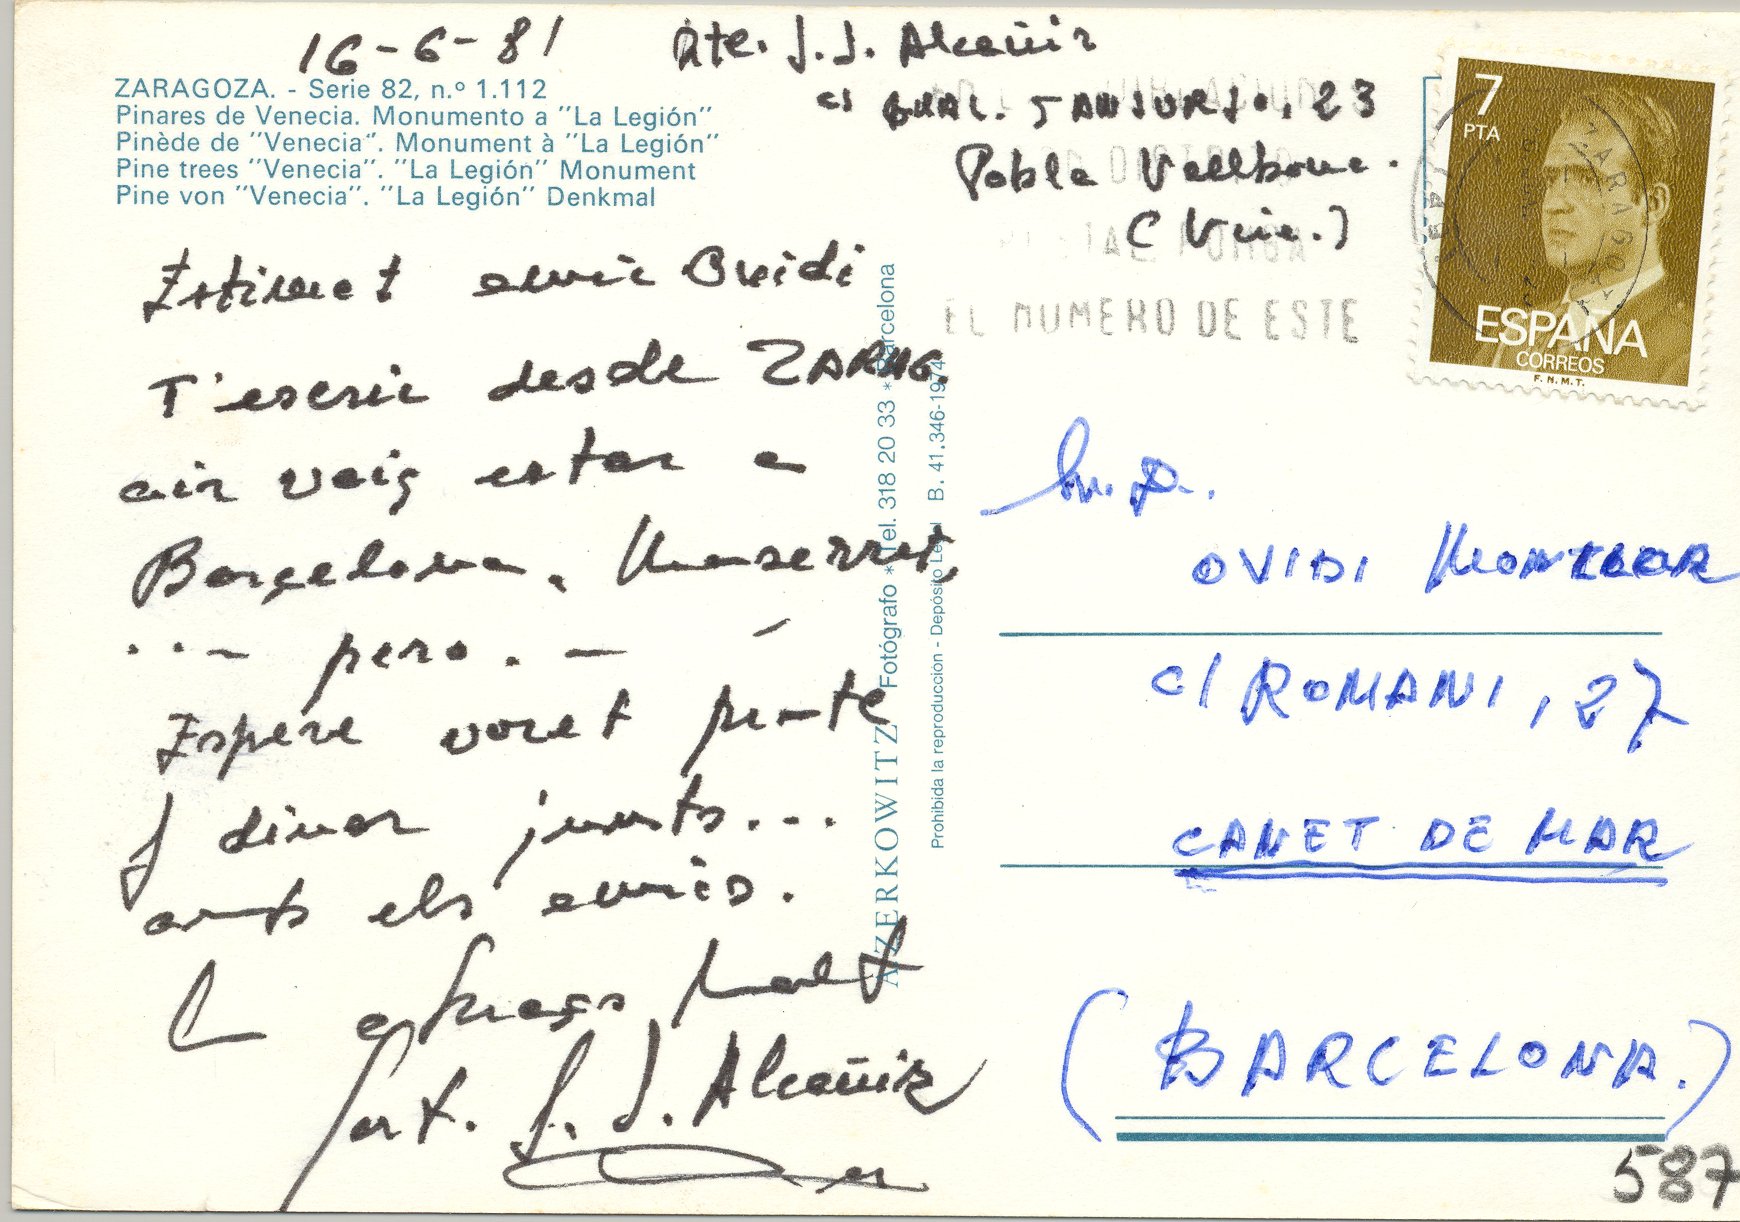 16-6-81
Rte. J. J. Alcañiz
c/ GRAL. SANJURJO, 23
Pobla Vallbona.
(Vcia.)
ZARAGOZA. - Serie 82, n.º 1.112
Pinares de Venecia. Monumento a "La Legión"
Pinède de "Venecia". Monument à "La Legión"
Pine trees "Venecia". "La Legión" Monument
Pine von "Venecia". "La Legión" Denkmal
7
PTA
ESPAÑA
CORREOS
F. N. M. T.
ZARAGOZA
POSTAL PONGA
EL NUMERO DE ESTE
Estimat amic Ovidi
T'escric desde ZARAG.
air vaig estar a
Barcelona, Monserrat,
... pero. -
Espere voret pronte
I dinar junts...
amb els amics.
Un abraç molt
fort. J. J. Alcañiz
A. ZERKOWITZ Fotógrafo * Tel. 318 20 33 * Barcelona
Prohibida la reproducción - Depósito Legal B. 41.346-1974
Sr. D.
OVIDI MONTLLOR
c/ ROMANI, 27
CANET DE MAR
(BARCELONA.)
587